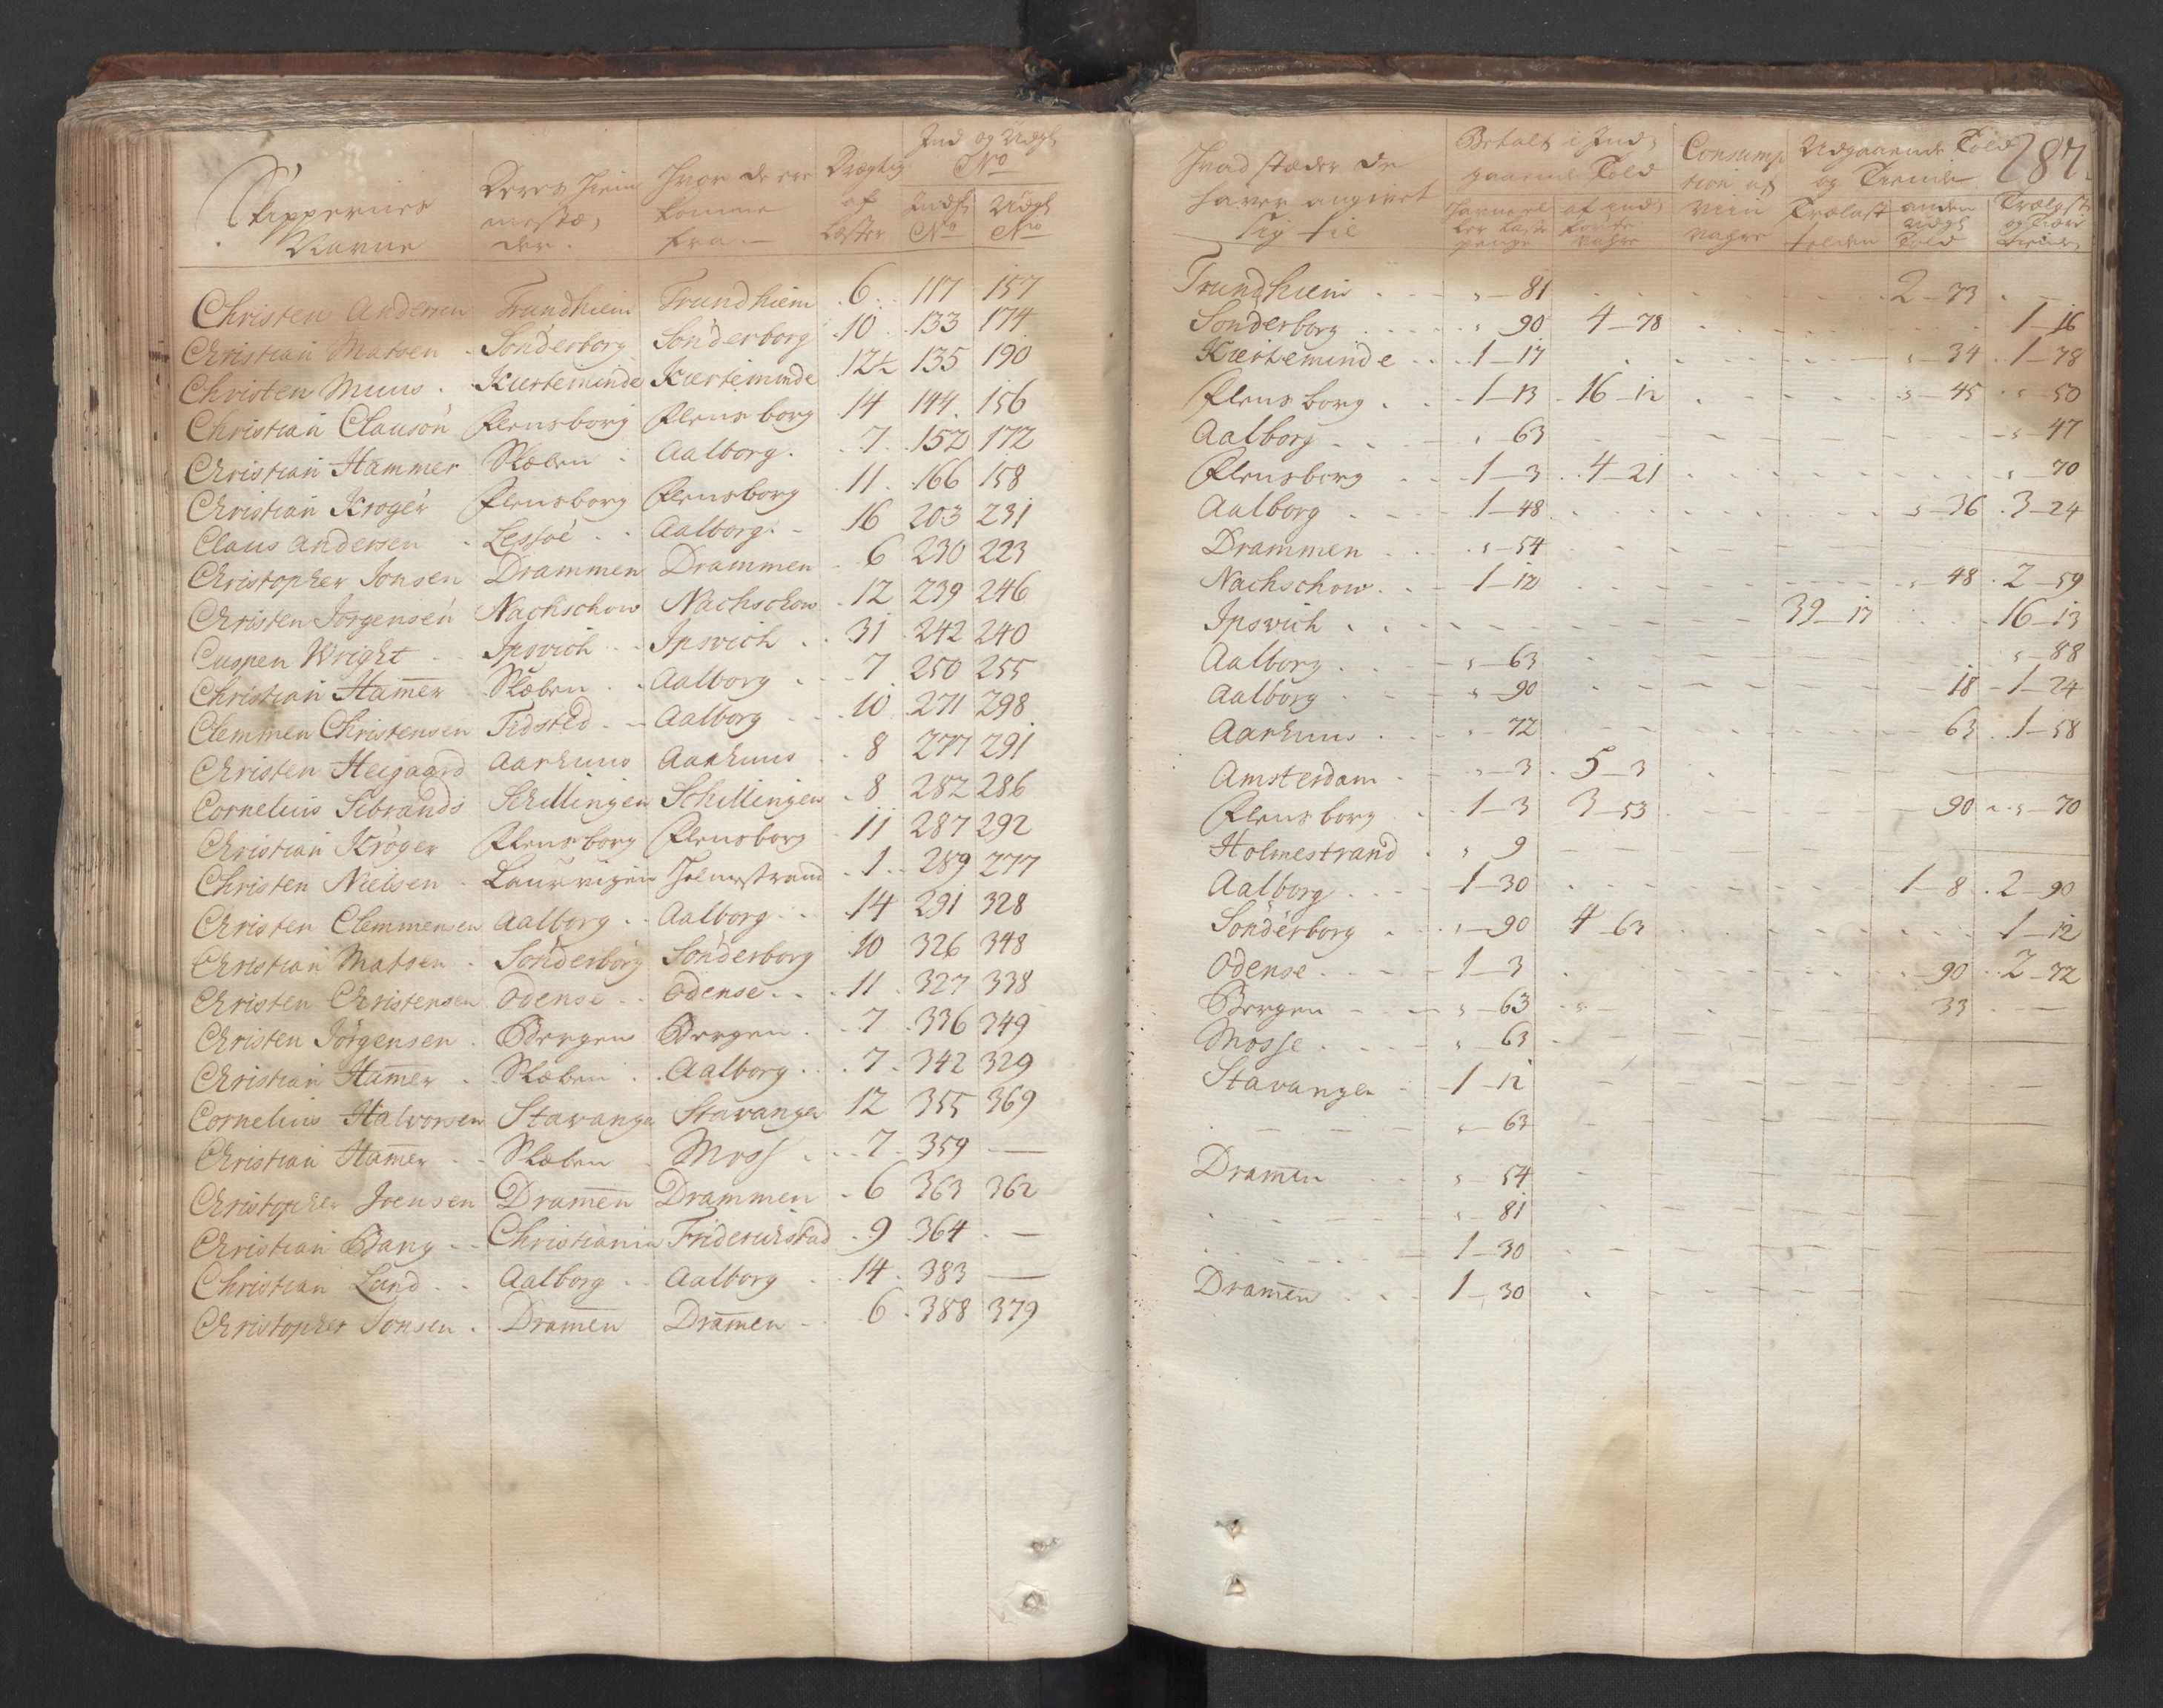 Skippernes Navne | Deres Hiemmestæder. | Hvor de ere komne fra. | Drægtig af Læster | Ind og Udgl No | Indgl No | Udgl No
Christen Andersen | Trundhiem | Trundhiem | 6 | 117 | 157
Christian Matsen | Sönderborg | Sönderborg | 10 | 133 | 174
Christen Muus | Kierteminde | Kierteminde | 12½ | 135 | 190
Christian Clausön | Flensborg | Flensborg | 14 | 144 | 156
Christian Hammer | Skæben | Aalborg | 7 | 152 | 172
Christian Kroger | Flensborg | Flensborg | 11 | 166 | 158
Claus Andersen | Lessöe | Aalborg | 16 | 203 | 231
Christopher Jonsen | Drammen | Drammen | 6 | 230 | 223
Christen Jörgensen | Nachschow | Nachschow | 12 | 239 | 246
Cuspen Wright | Ipsvich | Ipsvich | 31 | 242 | 240
Christian Ham̅er | Skæben | Aalborg | 7 | 250 | 255
Clemmen Christensen | Tidsted | Aalborg | 10 | 271 | 298
Christen Heigaard | Aarhuus | Aarhuus | 8 | 277 | 291
Cornelius Sibrands | Schillingen | Schillingen | 8 | 282 | 286
Christian Kröger | Flensborg | Flensborg | 11 | 287 | 292
Christen Nielsen | Laurvigen | Holmestrand | 1 | 289 | 277
Christen Clemmensen | Aalborg | Aalborg | 14 | 291 | 328
Christian Matsen | Sönderborg | Sönderborg | 10 | 326 | 348
Christen Christensen | Odense | Odense | 11 | 327 | 338
Christen Jörgensen | Bergen | Bergen | 7 | 336 | 349
Christian Ham̅er | Skæben | Aalborg | 7 | 342 | 329
Cornelius Halvorsen | Stavanger | Stavanger | 12 | 355 | 369
Christian Ham̅er | Skæben | Moss | 7 | 359 | —
Christopher Joensen | Dram̅en | Drammen | 6 | 363 | 362
Christian Bang | Christiania | Friderichstad | 9 | 364 | —
Christian Lund | Aalborg | Aalborg | 14 | 383 | —
Christopher Jonsen | Dram̅en | Dram̅en | 6 | 388 | 379
287
Hvad stæder de haver angivet sig til | Betalt i Indgaaende Told | Consumption af | Udgaaende Told og Tiende | Trælast tolden | anden Udgl Told
Trundhiem | 81 | 2–73
Sönderborg | 90 | 4–78 | 1–16
Kierteminde | 1–17 | 34 | 1–78
Flensborg | 1–13 | 16–12 | 45 | 50
Aalborg | 63 | 47
Flensborg | 1–3 | 4–21 | 70
Aalborg | 1–48 | 36 | 3–24
Drammen | 54
Nachschow | 1–12 | 48 | 2–59
Ipsvich | 39–17 | 16–13
Aalborg | 63 | 88
Aalborg | 90 | 18 | 1–24
Aarhuus | 72 | 63 | 1–58
Amsterdam | 3 | 5–3
Flensborg | 1–3 | 3–53 | 90 | 70
Holmestrand | 9
Aalborg | 1–30 | 1–8 | 2–90
Sönderborg | 90 | 4–63 | 1–12
Odense | 1–3 | 90 | 2–72
Bergen | 63 | 33 | —
Mosse | 63
Stavanger | 1–12
63
Dram̅en | 54
81
1–30
Dram̅en | 1–30